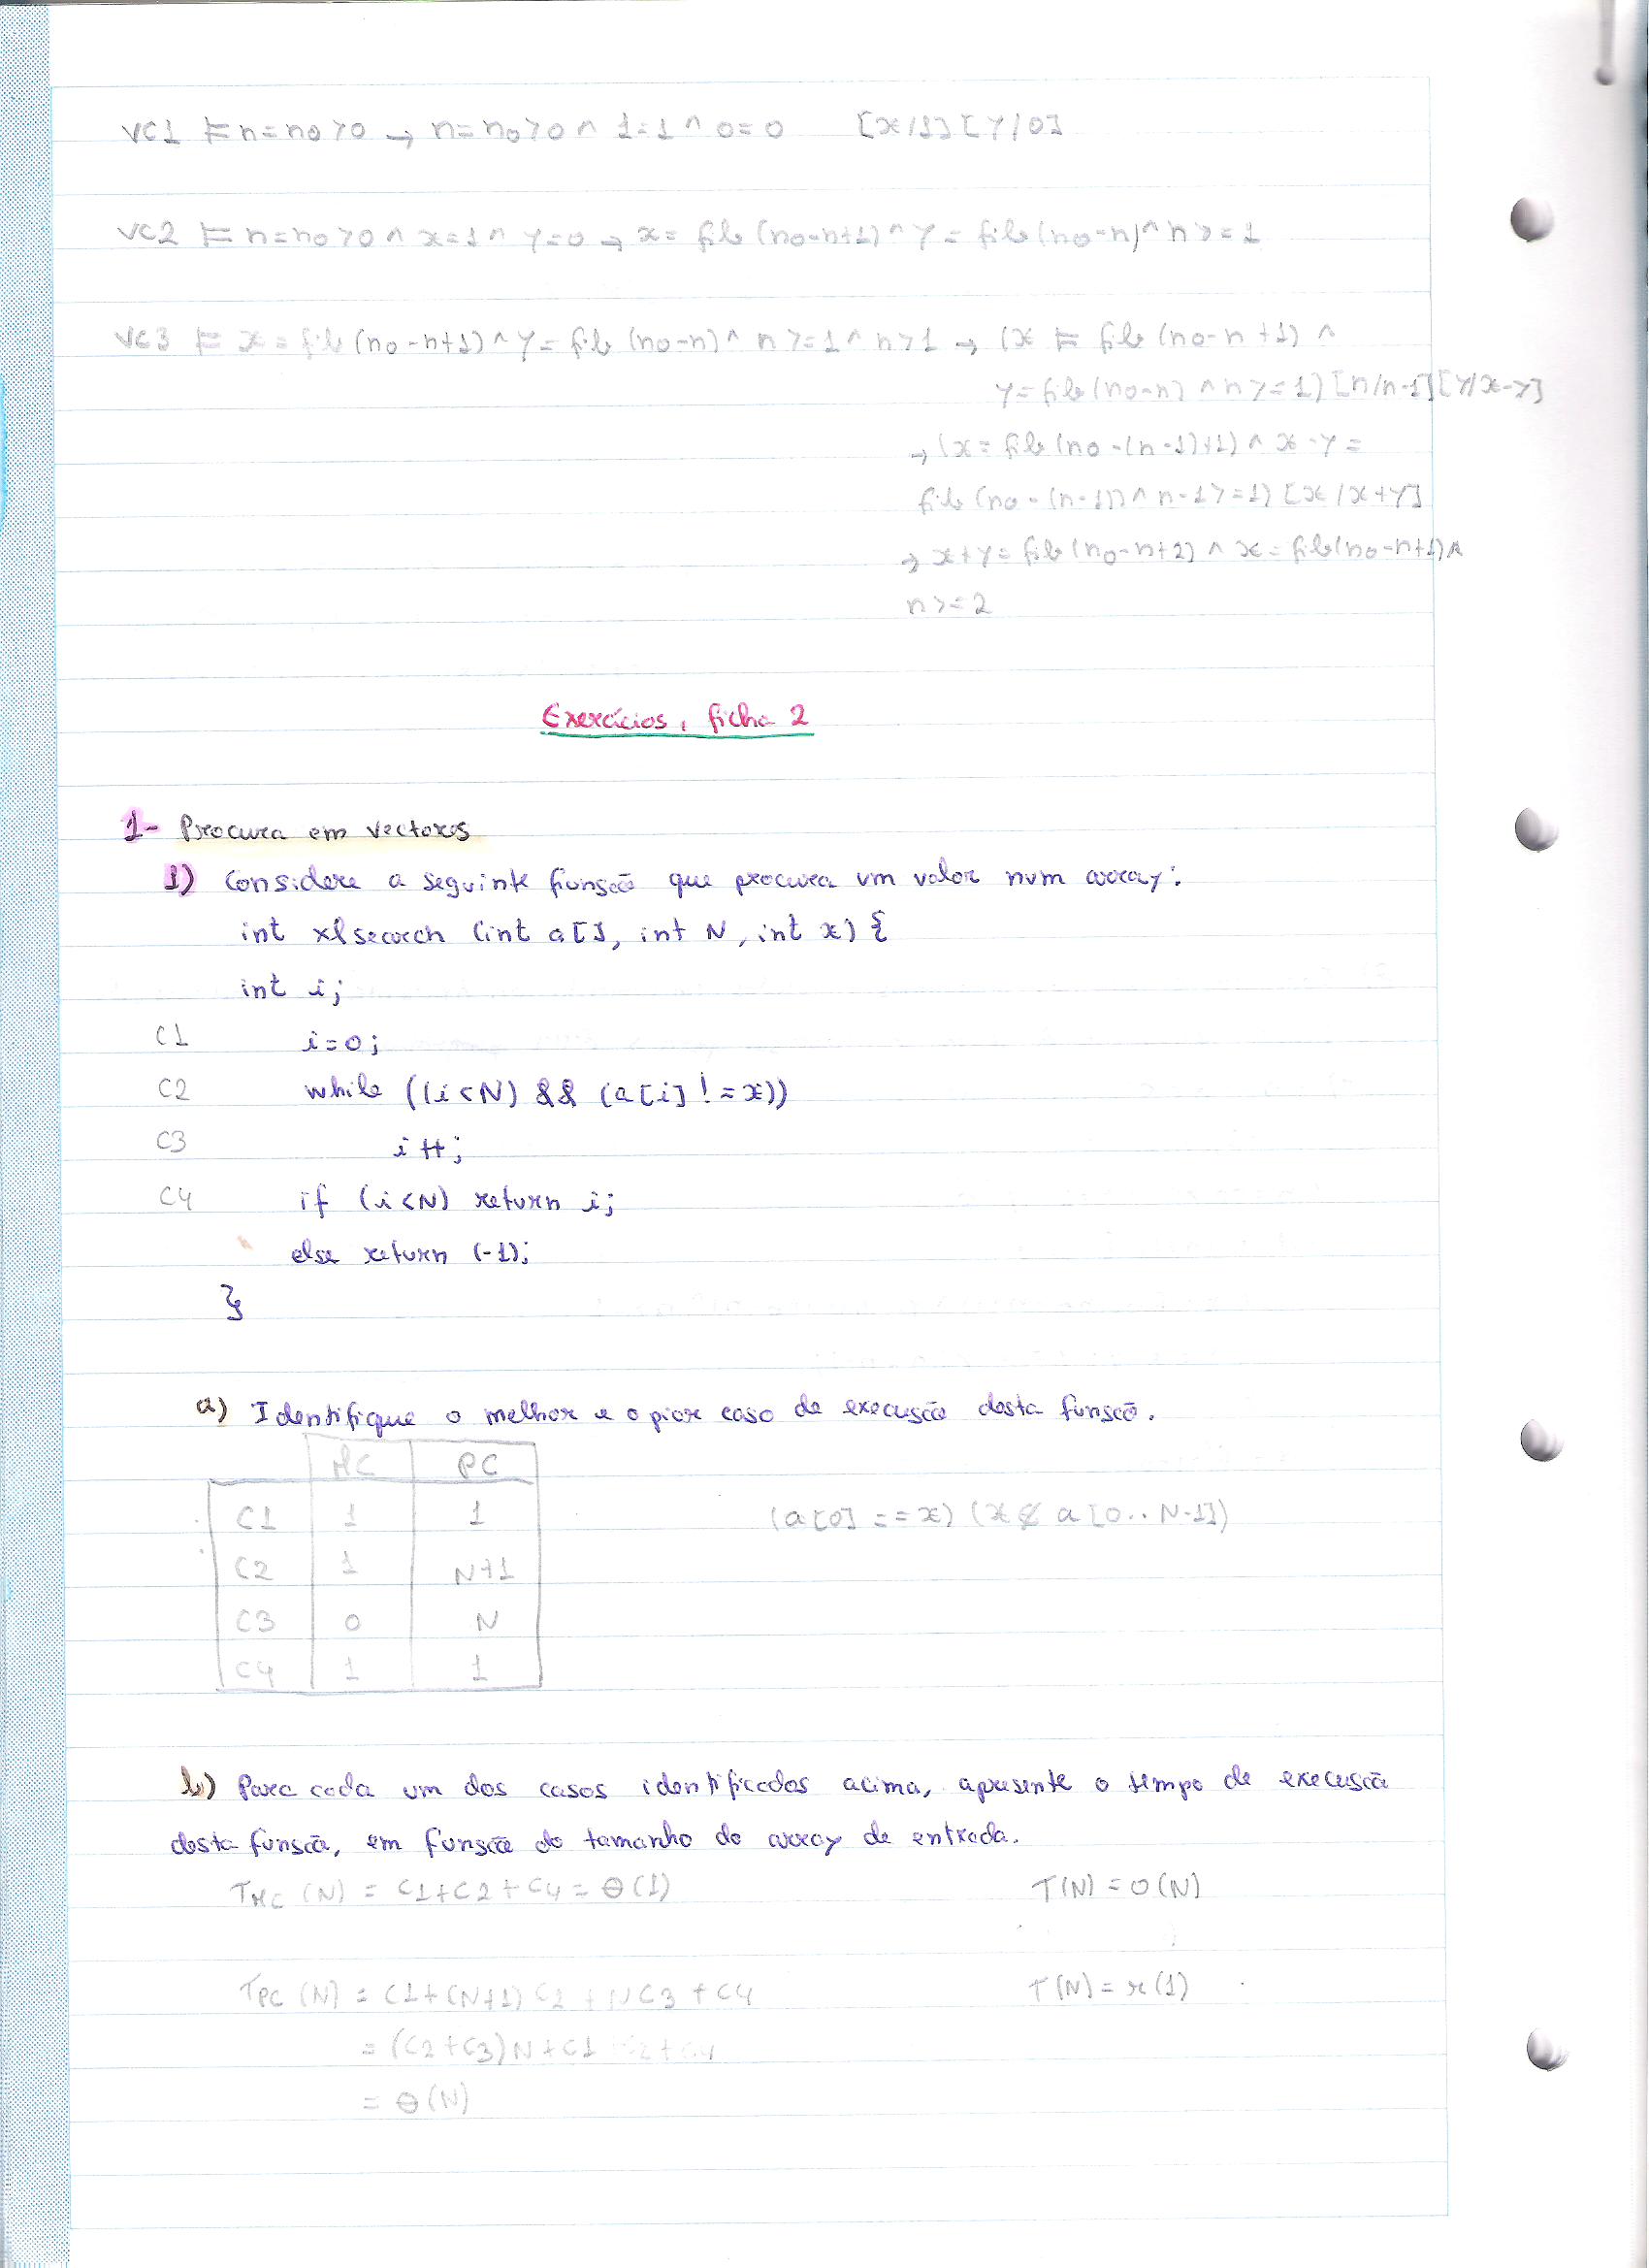 VC1 ⊨ n=n0>0 → n=n0>0 ^ 1=1 ^ 0=0 [x/1][y/0]
VC2 ⊨ n=n0>0 ^ x=1 ^ y=0 → x= fib (n0-n+1) ^ y = fib (n0-n) ^ n >= 1
VC3 ⊨ x = fib (n0-n+1) ^ y = fib (n0-n) ^ n >= 1 ^ n > 1 → (x = fib (n0-n+1) ^
y = fib (n0-n) ^ n >= 1) [n/n-1][y/x-y]
→ (x = fib (n0-(n-1)+1) ^ x-y =
fib (n0-(n-1)) ^ n-1 >= 1) [x/x+y]
→ x+y = fib (n0-n+2) ^ x = fib (n0-n+1) ^
n >= 2
Exercícios, ficha 2
1- Procura em vectores
1) Considere a seguinte função que procura um valor num array:
int xlsearch (int a[], int N, int x) {
int i;
C1 i=0;
C2 while ((i<N) && (a[i] != x))
C3 i++;
C4 if (i<N) return i;
else return (-1);
}
a) Identifique o melhor e o pior caso de execusão desta função.
MC PC
C1 1 1 (a[0] == x) (x ∉ a[0..N-1])
C2 1 N+1
C3 0 N
C4 1 1
b) Para cada um dos casos identificados acima, apresente o tempo de execusão
desta função, em função do tamanho do array de entrada.
TMC (N) = C1+C2+C4 = Θ(1) T(N) = O(N)
TPC (N) = C1+(N+1) C2 + NC3 + C4 T(N) = Ω(1)
= (C2+C3)N+C1+C2+C4
= Θ(N)